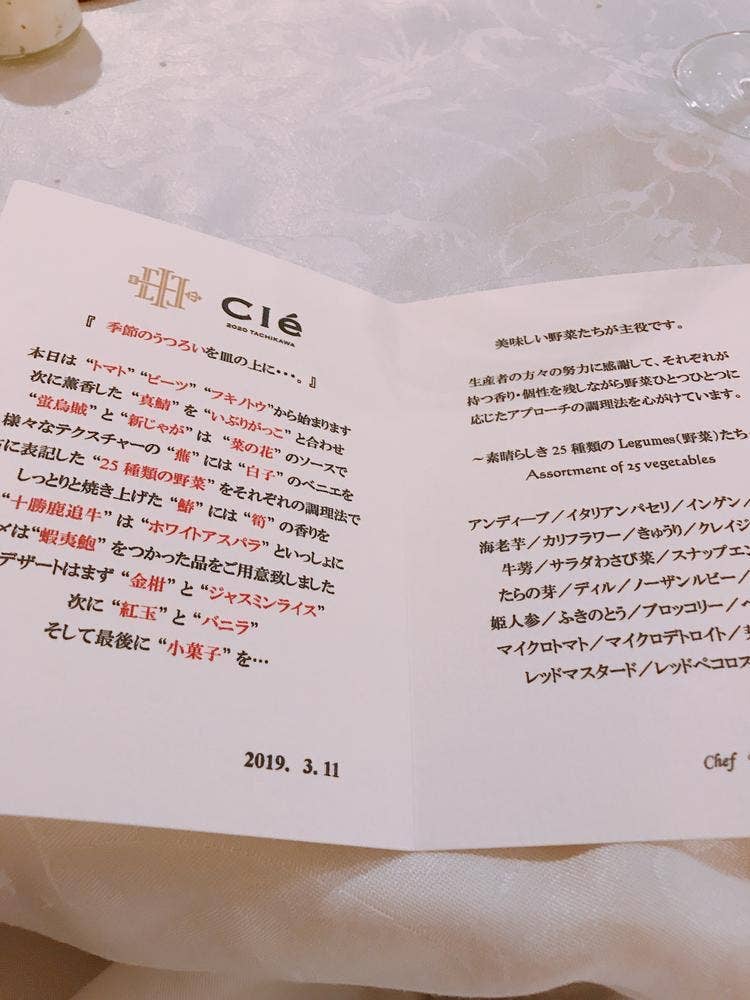 CIé
2020 TACHIKAWA
『 季節のうつろいを皿の上に・・・。』
本日は “トマト” “ビーツ” “フキノトウ”から始まります
次に薫香した “真鯖” を “いぶりがっこ” と合わせ
“蛍烏賊” と “新じゃが” は “菜の花” のソースで
様々なテクスチャーの “蕪” には “白子” のベニエを
に表記した “25 種類の野菜” をそれぞれの調理法で
しっとりと焼き上げた “鰆” には “筍” の香りを
“十勝鹿追牛” は “ホワイトアスパラ” といっしょに
メは “蝦夷鮑” をつかった品をご用意致しました
デザートはまず “金柑” と “ジャスミンライス”
次に “紅玉” と “バニラ”
そして最後に “小菓子” を…
2019. 3. 11
美味しい野菜たちが主役です。
生産者の方々の努力に感謝して、それぞれが
持つ香り・個性を残しながら野菜ひとつひとつに
応じたアプローチの調理法を心がけています。
～素晴らしき 25 種類の Legumes（野菜）たち
Assortment of 25 vegetables
アンディーブ／イタリアンパセリ／インゲン／
海老芋／カリフラワー／きゅうり／クレイジ
牛蒡／サラダわさび菜／スナップエン
たらの芽／ディル／ノーザンルビー／
姫人参／ふきのとう／ブロッコリー／
マイクロトマト／マイクロデトロイト／
レッドマスタード／レッドペコロス
Chef